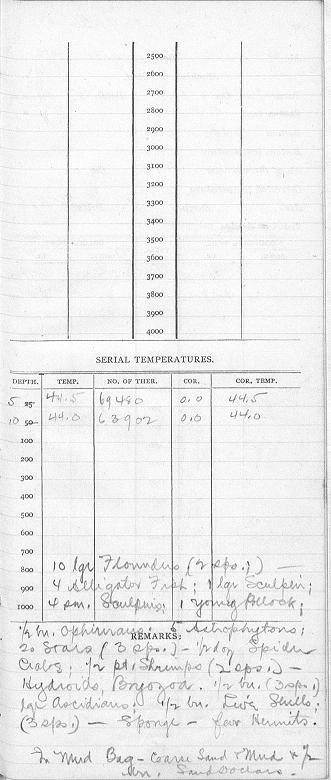 2500
2600
2700
2800
2900
3000
3100
3200
3300
3400
3500
3600
3700
3800
3900
4000
SERIAL TEMPERATURES.
DEPTH. TEMP. NO. OF THER. COR. COR. TEMP.
5 25 44.5 69480 0.0 44.5
10 50 44.0 63902 0.0 44.0
100
200
300
400
500
600
700
800 10 lgr Flounders (2 sps.;) —
900 4 Alligator Fish; 1 lgr Sculpin;
1000 4 sm. Sculpins; 1 young Pollock;
½ bu. Ophiurans; 6 Astrophytons;
REMARKS:
20 Stars (3 sps.) - ½ doz Spider
Crabs; ½ pt. Shrimps (2 sps.) —
Hydroids, Bryozoa. ½ bu. (3 sps.)
lge Ascidians; ½ bu. Live Shells;
(3 sps.) — Sponge - few Hermits.
In Mud Bag - Coarse Sand & Mud & ½
bu. Sand Dollars.